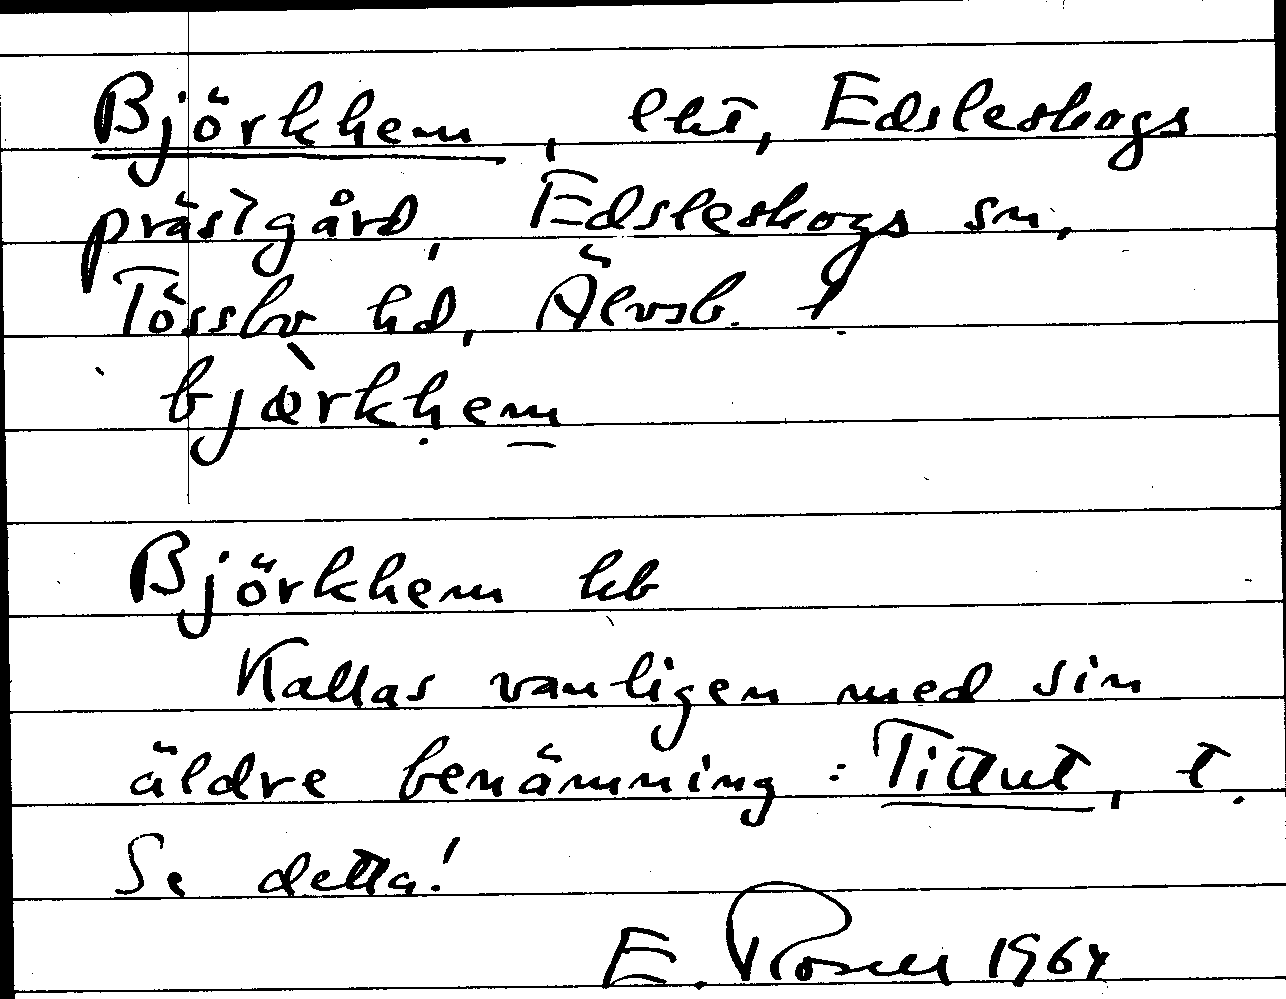 Björkhem, lht, Edsleskogs
prästgård, Edsleskogs sn,
Tössbo hd, Älvsb. l.
bjæ̀rkḥem̲
Björkhem hb
Kallas vanligen med sin
äldre benämning: Tittut, t.
Se detta!
E. Rosell 1964